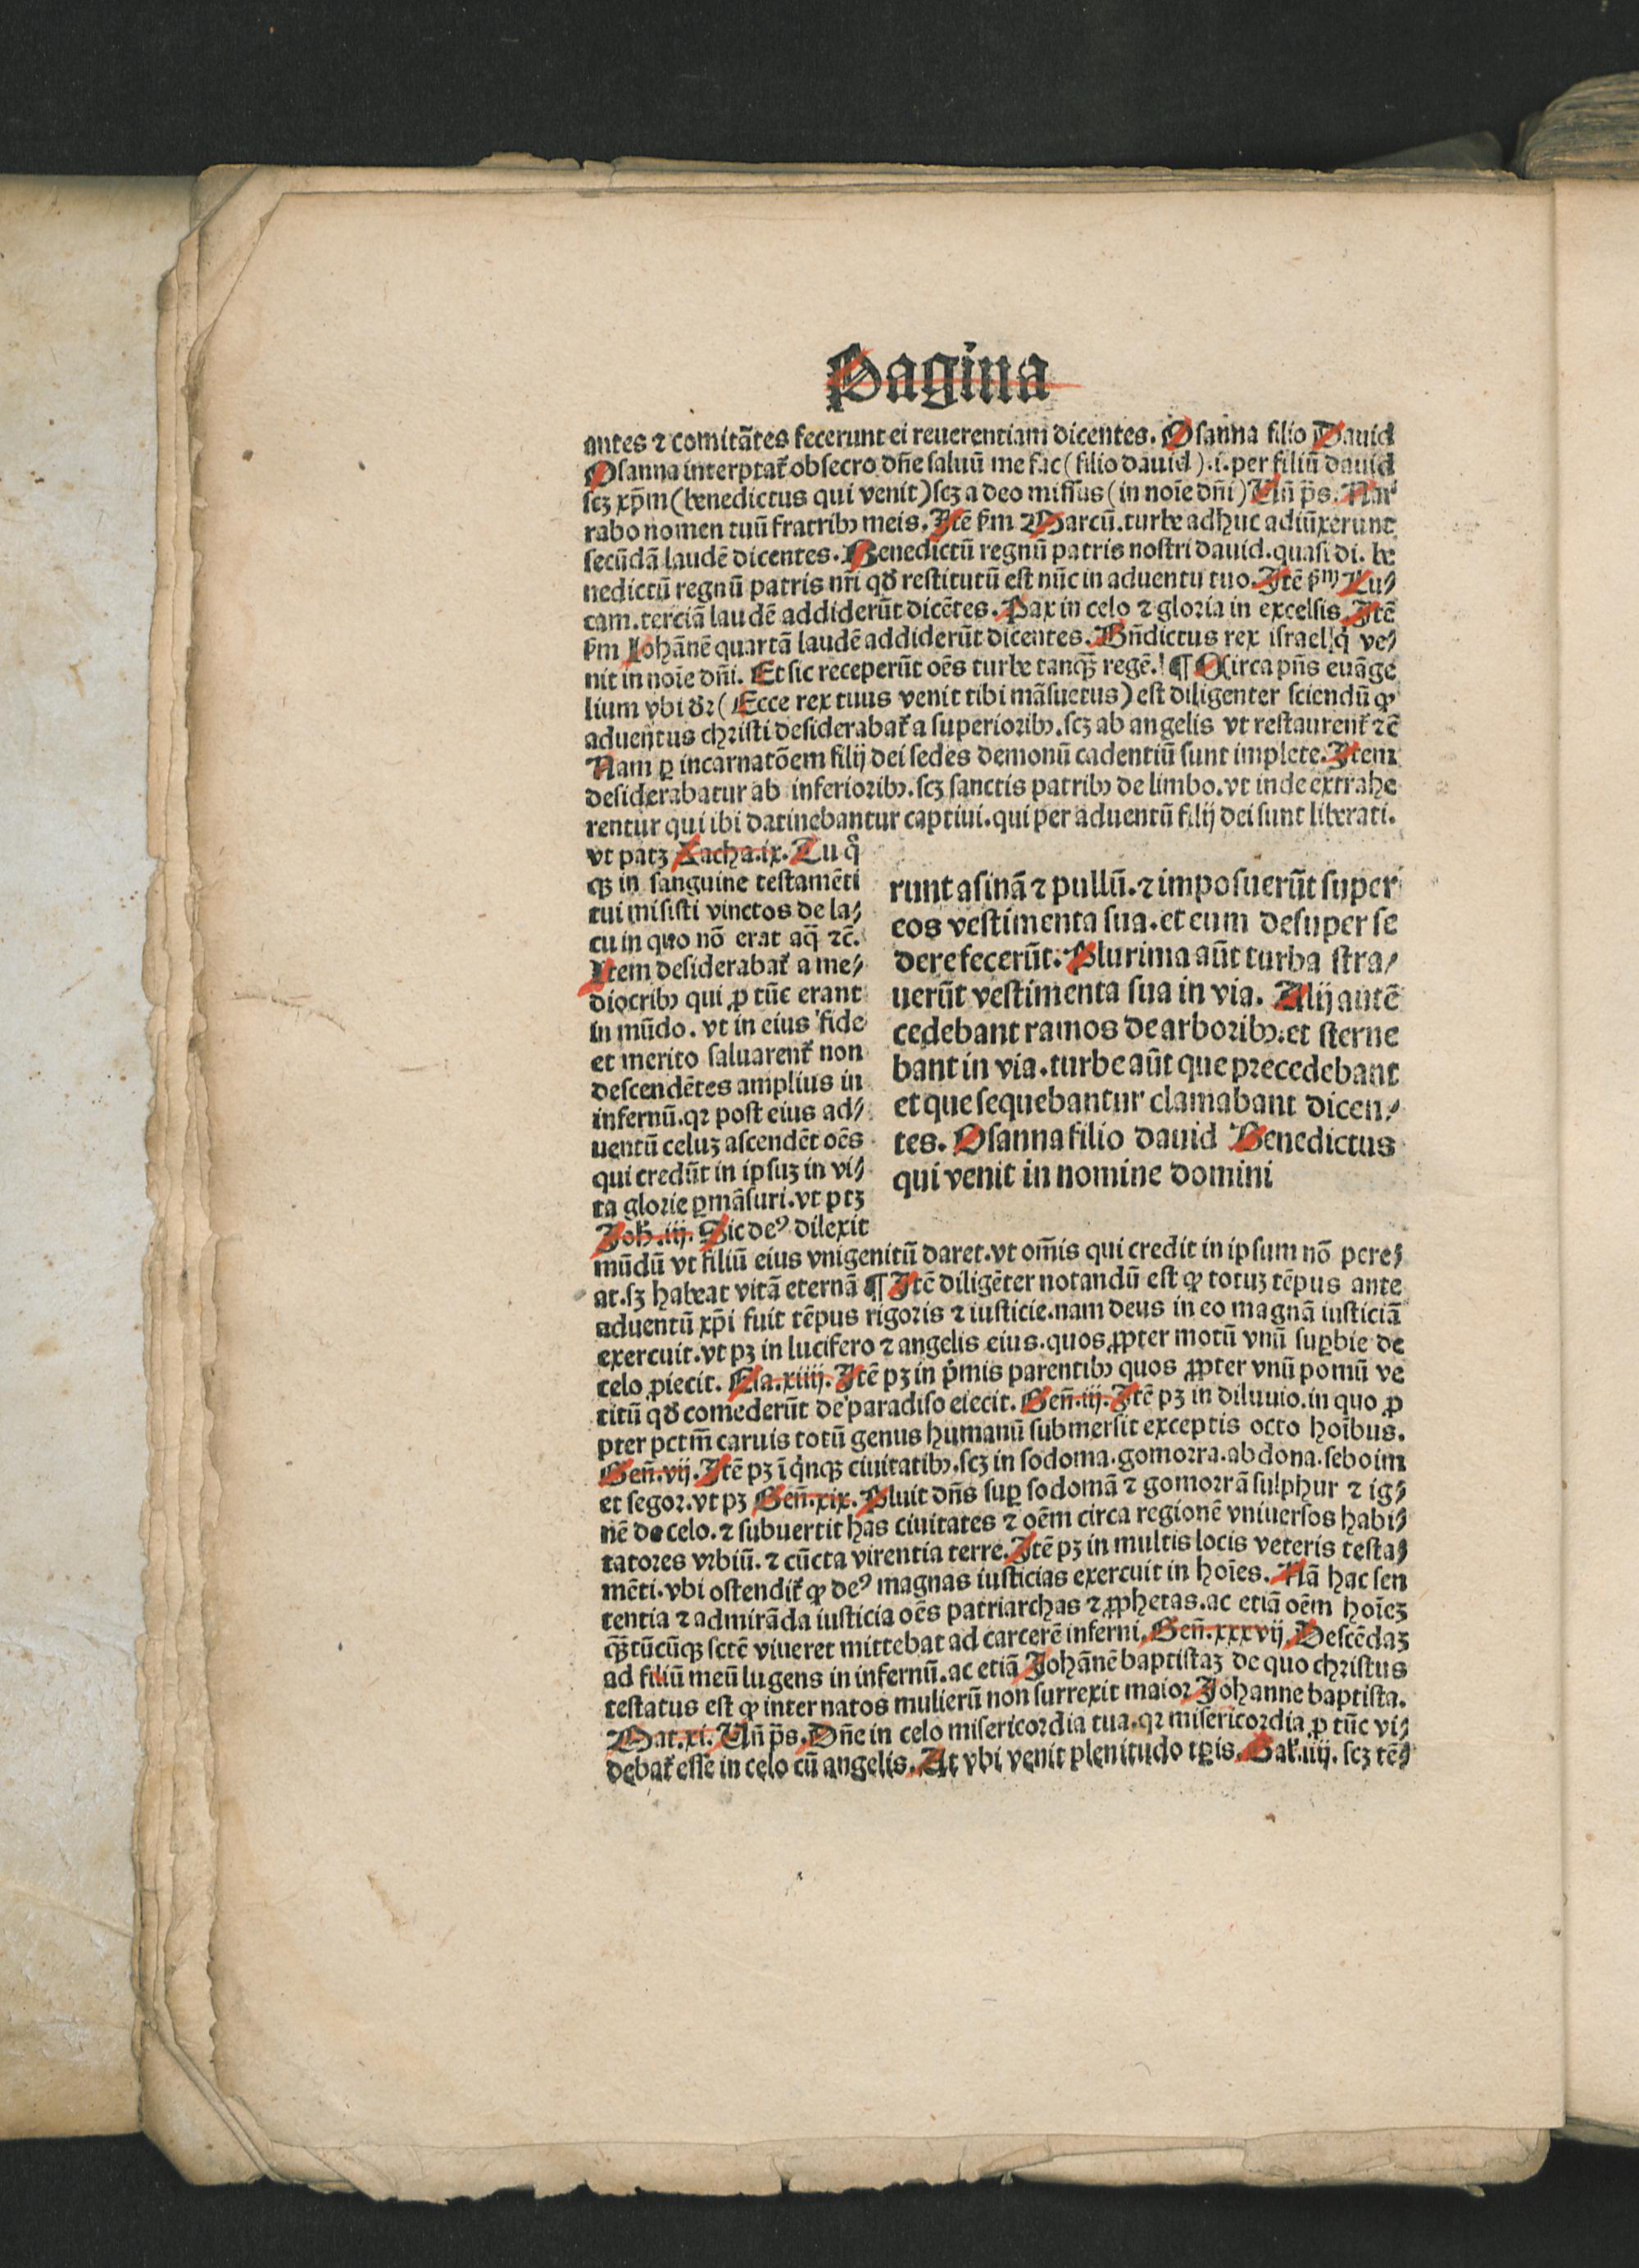 Pagina
antes ⁊ comitātes fecerunt ei reuerentiam dicentes. Osanna filio Dauid
Osanna interptat᷑ obsecro dñe saluū me fac (filio dauid) .i. per filiū dauid
scꝫ xp̄m (benedictus qui venit) scꝫ a deo missus (in noīe dñi) Uñ ps̄. Nar
rabo nomen tuū fratribꝰ meis. Itē ẜm Marcū. turbe adhuc adiūxerunt
secūdā laudē dicentes. Benedictū regnū patris nostri dauid. quasi di. be
nedictū regnū patris nr̄i qď restitutū est nūc in aduentu tuo. Itē ẜm Lu⸗
cam. terciā laudē addiderūt dicētes. Pax in celo ⁊ gloria in excelsis. Itē
ẜm Iohānē quartā laudē addiderūt dicentes. Bñdictus rex israel q̇ ve⸗
nit in noīe dñi. Et sic receperūt oēs turbe tanqꝫ̄ regē. ¶ Circa pñs euāge
lium vbi dr̄ (Ecce rex tuus venit tibi māsuetus) est diligenter sciendū ꝙ
aduentus christi desiderabat᷑ a superioribꝰ. scꝫ ab angelis vt restaurent᷑ ⁊c̄
Nam ꝑ incarnatōem filij dei sedes demonū cadentiū sunt implete. Item
desiderabatur ab inferioribꝰ. scꝫ sanctis patribꝰ de limbo. vt inde extrahe
rentur qui ibi datinebantur captiui. qui per aduentū filij dei sunt liberati.
vt patꝫ Zacha. ix. Tu q̊
qꝫ in sanguine testamēti
tui misisti vinctos de la⸗
cu in quo nō erat aq̄ ⁊c̄.
Item desiderabat᷑ a me⸗
diocribꝰ qui ꝓ tūc erant
in mūdo. vt in eius fide
et merito saluarent᷑ non
descendētes amplius in
infernū. qꝛ post eius ad⸗
uentū celuꝫ ascendēt oēs
qui credūt in ipsuꝫ in vi⸗
ta glorie ꝑmāsuri. vt ptꝫ
Joh̄. iij. Sic deꝰ dilexit
runt asinā ⁊ pullū. ⁊ imposuerūt super
eos vestimenta sua. et eum desuper se
dere fecerūt. Plurima aūt turba stra⸗
uerūt vestimenta sua in via. Alij autē
cedebant ramos de arboribꝰ. et sterne
bant in via. turbe aūt que precedebant
et que sequebantur clamabant dicen⸗
tes. Osanna filio dauid Benedictus
qui venit in nomine domini
mūdū vt filiū eius vnigenitū daret. vt om̄is qui credit in ipsum nō pere⸗
at. sꝫ habeat vitā eternā ¶ Itē diligēter notandū est ꝙ totuꝫ tēpus ante
aduentū xp̄i fuit tēpus rigoris ⁊ iusticie. nam deus in eo magnā iusticiā
exercuit. vt pꝫ in lucifero ⁊ angelis eius. quos ꝓpter motū vnū suꝑbie de
celo ꝓiecit. Esa. xiiij. Itē pꝫ in p̄mis parentibꝰ quos ꝓpter vnū pomū ve
titū qď comederūt de paradiso eiecit. Geñ. iij. Itē pꝫ in diluuio. in quo ꝓ
pter pctm̄ carnis totū genus humanū submersit exceptis octo hoībus.
Geñ. vij. Itē pꝫ ī q̇nqꝫ ciuitatibꝰ. scꝫ in sodoma. gomorra. abdona. seboim
et segor. vt pꝫ Geñ. xix. Pluit dñs suꝑ sodomā ⁊ gomorrā sulphur ⁊ ig⸗
nē de celo. ⁊ subuertit has ciuitates ⁊ oēm circa regionē vniuersos habi⸗
tatores vrbiū. ⁊ cūcta virentia terre. Itē pꝫ in multis locis veteris testa⸗
mēti. vbi ostendit᷑ ꝙ deꝰ magnas iusticias exercuit in hoīes. Nā hac sen
tentia ⁊ admirāda iusticia oēs patriarchas ⁊ ꝓphetas. ac etiā oēm hoīeꝫ
qꝫ̄tūcūqꝫ sctē viueret mittebat ad carcerē inferni. Geñ. xxxvij. Descēdaꝫ
ad filiū meū lugens in infernū. ac etiā Johānē baptistaꝫ de quo christus
testatus est ꝙ inter natos mulierū non surrexit maior Johanne baptista.
Mat. xi. Uñ ps̄. Dñe in celo misericordia tua. qꝛ misericordia ꝓ tūc vi⸗
debat᷑ esse in celo cū angelis. At vbi venit plenitudo tꝑis. Gal᷑. iiij. scꝫ tē⸗